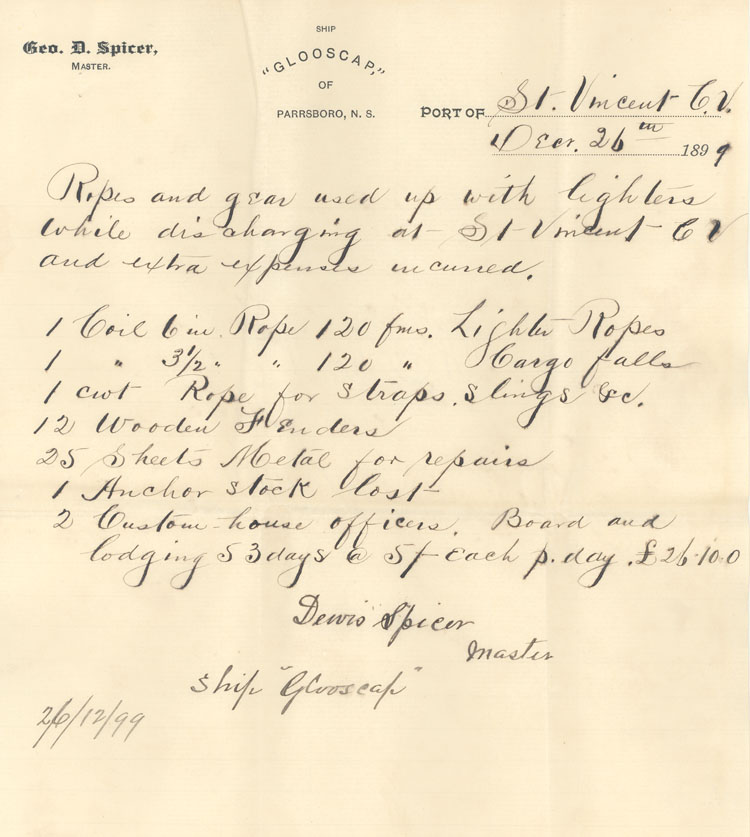 Geo. D. Spicer,
MASTER.
SHIP
"GLOOSCAP,"
OF
PARRSBORO, N. S.
PORT OF St. Vincent C.V.
Decr. 26th 1899
Ropes and gear used up with lighters
while discharging at St Vincent C V
and extra expenses incurred.
1 Coil 6 in. Rope 120 fms. Lighter Ropes
1 " 3 1/2 " " 120 " Cargo falls
1 cwt Rope for Straps, Slings &c.
12 Wooden Fenders
25 Sheets Metal for repairs
1 Anchor Stock lost
2 Custom-house officers. Board and
lodging 53 days @ 5/- Each p. day. £26.10.0
Dewis Spicer
Master
Ship "Glooscap"
26/12/99